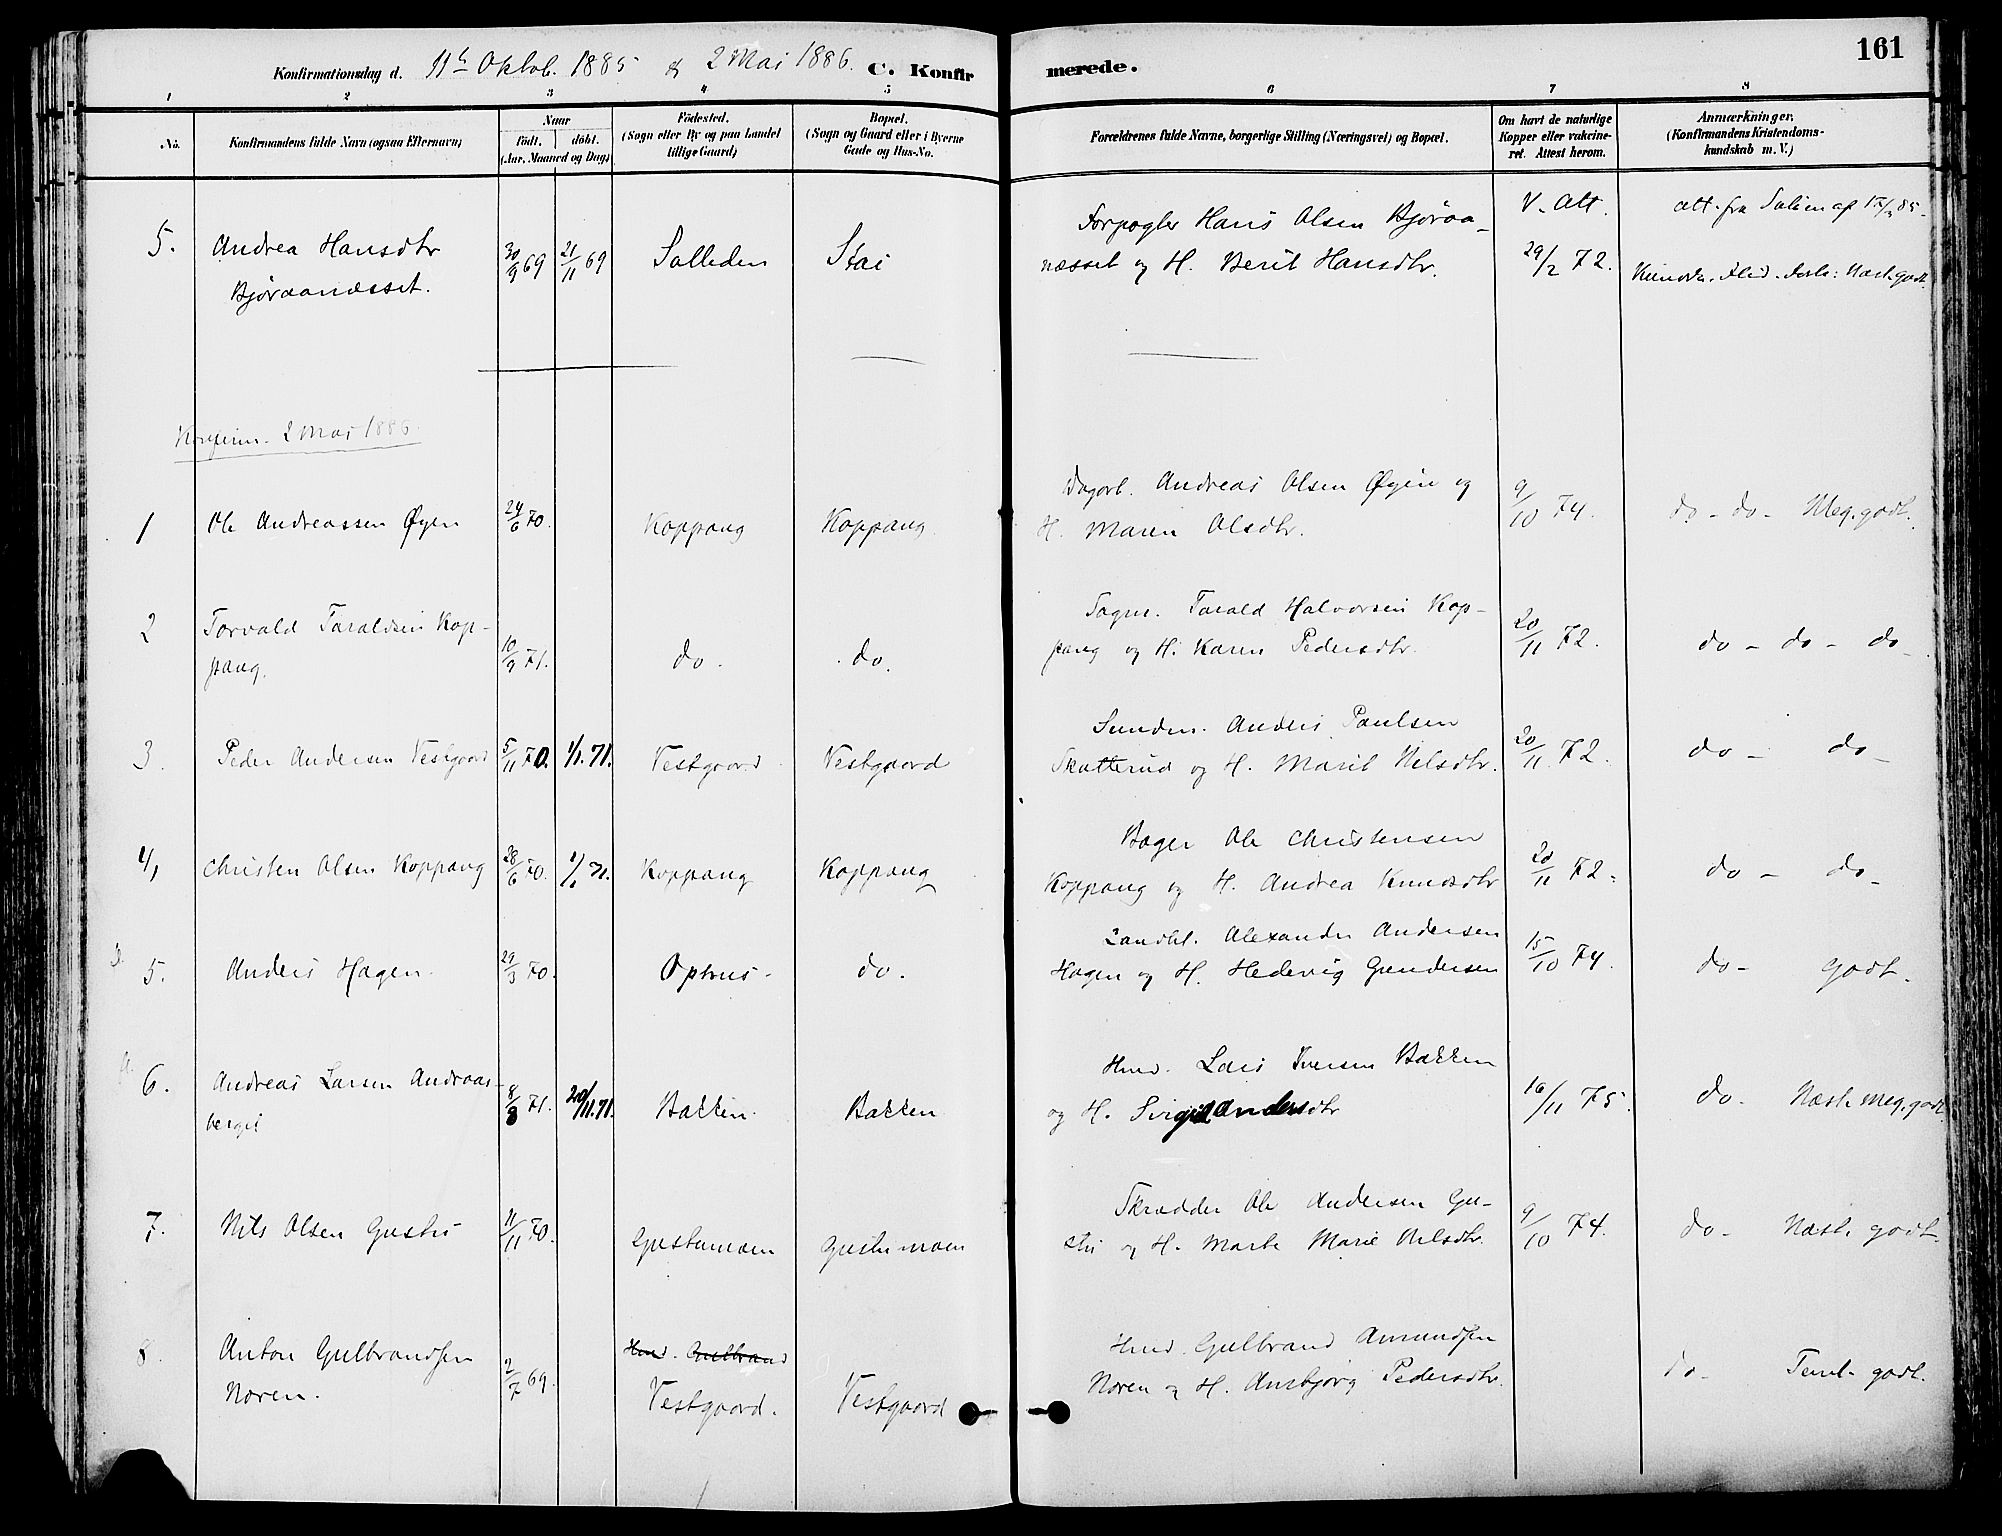 161
Konfirmationsdag d. 11te Oktob. 1885 & 2 Mai 1886. C. Konfirmerede.
1 2 3 4 5 6 7 8
No.
Konfirmandens fulde Navn (ogsaa Efternavn)
Naar
födt. döbt.
(Aar, Maaned og Dag)
Födested.
(Sogn eller By og paa Landet
tillige Gaard)
Bopæl.
(Sogn og Gaard eller i Byerne
Gade og Hus-No.
Forældrenes fulde Navne, borgerlige Stilling (Næringsvei) og Bopæl.
Om havt de naturlige
Kopper eller vakcine-
ret. Attest herom.
Anmærkninger.
(Konfirmandens Kristendoms-
kundskab m. V.)
5. Andrea Hansdtr
Bjøraanæsset.
30/9 69 21/11 69 Solleden Stai
Forpagter Hans Olsen Bjøraa-
næsset og H. Berit Hansdtr.
V. Att.
29/2 72.
Att. fra
Næst. godt
Konfirm. 2 Mai 1886.
1 Ole Andreassen Øyen 24/6 70. Koppang Koppang
Dagarb. Andreas Olsen Øyen og
H. Maren Olsdtr.
9/10 74. do - do - Meg. godt.
2 Torvald Taraldsen Kop-
pang.
10/9 71. do. do.
Tarald Halvorsen Kop-
pang og H. Karen Pedersdtr.
20/11 72. do - do - do -
3. Peder Andersen Vestgaard 5/11 70. 1/1. 71. Vestgaard Vestgaard
Anders Paulsen
Skatterud og H. Marit Nilsdtr.
20/11 72. do - do -
4, Christen Olsen Koppang 28/6 70. 71. Koppang Koppang
Bager Ole Christensen
Koppang og H. Andrea Knudsdtr
20/11 72. do - do -
5. Anders Hagen. 29/3 70. Ophus - do.
Landhl. Alexander Andersen
Hagen og H. Hedevig Gundersen
15/10 74. do - Godt.
6. Andreas Larsen Andraas-
berget
8/8 71. 20/11. 71. Bakken Bakken
Hmd. Lars Iversen Bakken
og H. Sirgid Andersdtr
16/11 75. do. Næst. meg. godt
7. Nils Olsen Gustu 11/11 70. Gustumoen Gustumoen
Skrædder Ole Andersen Gu-
stu og H. Marte Marie Nilsdtr.
9/10 74. do - Næst. godt.
8. Anton Gulbrandsen
Noren.
2/7 69. Hmd. Gulbrand
Vestgaard. Vestgaard
Hmd. Gulbrand Amundsen
Noren og H. Ambjørg Pedersdtr.
do - Teml. godt.